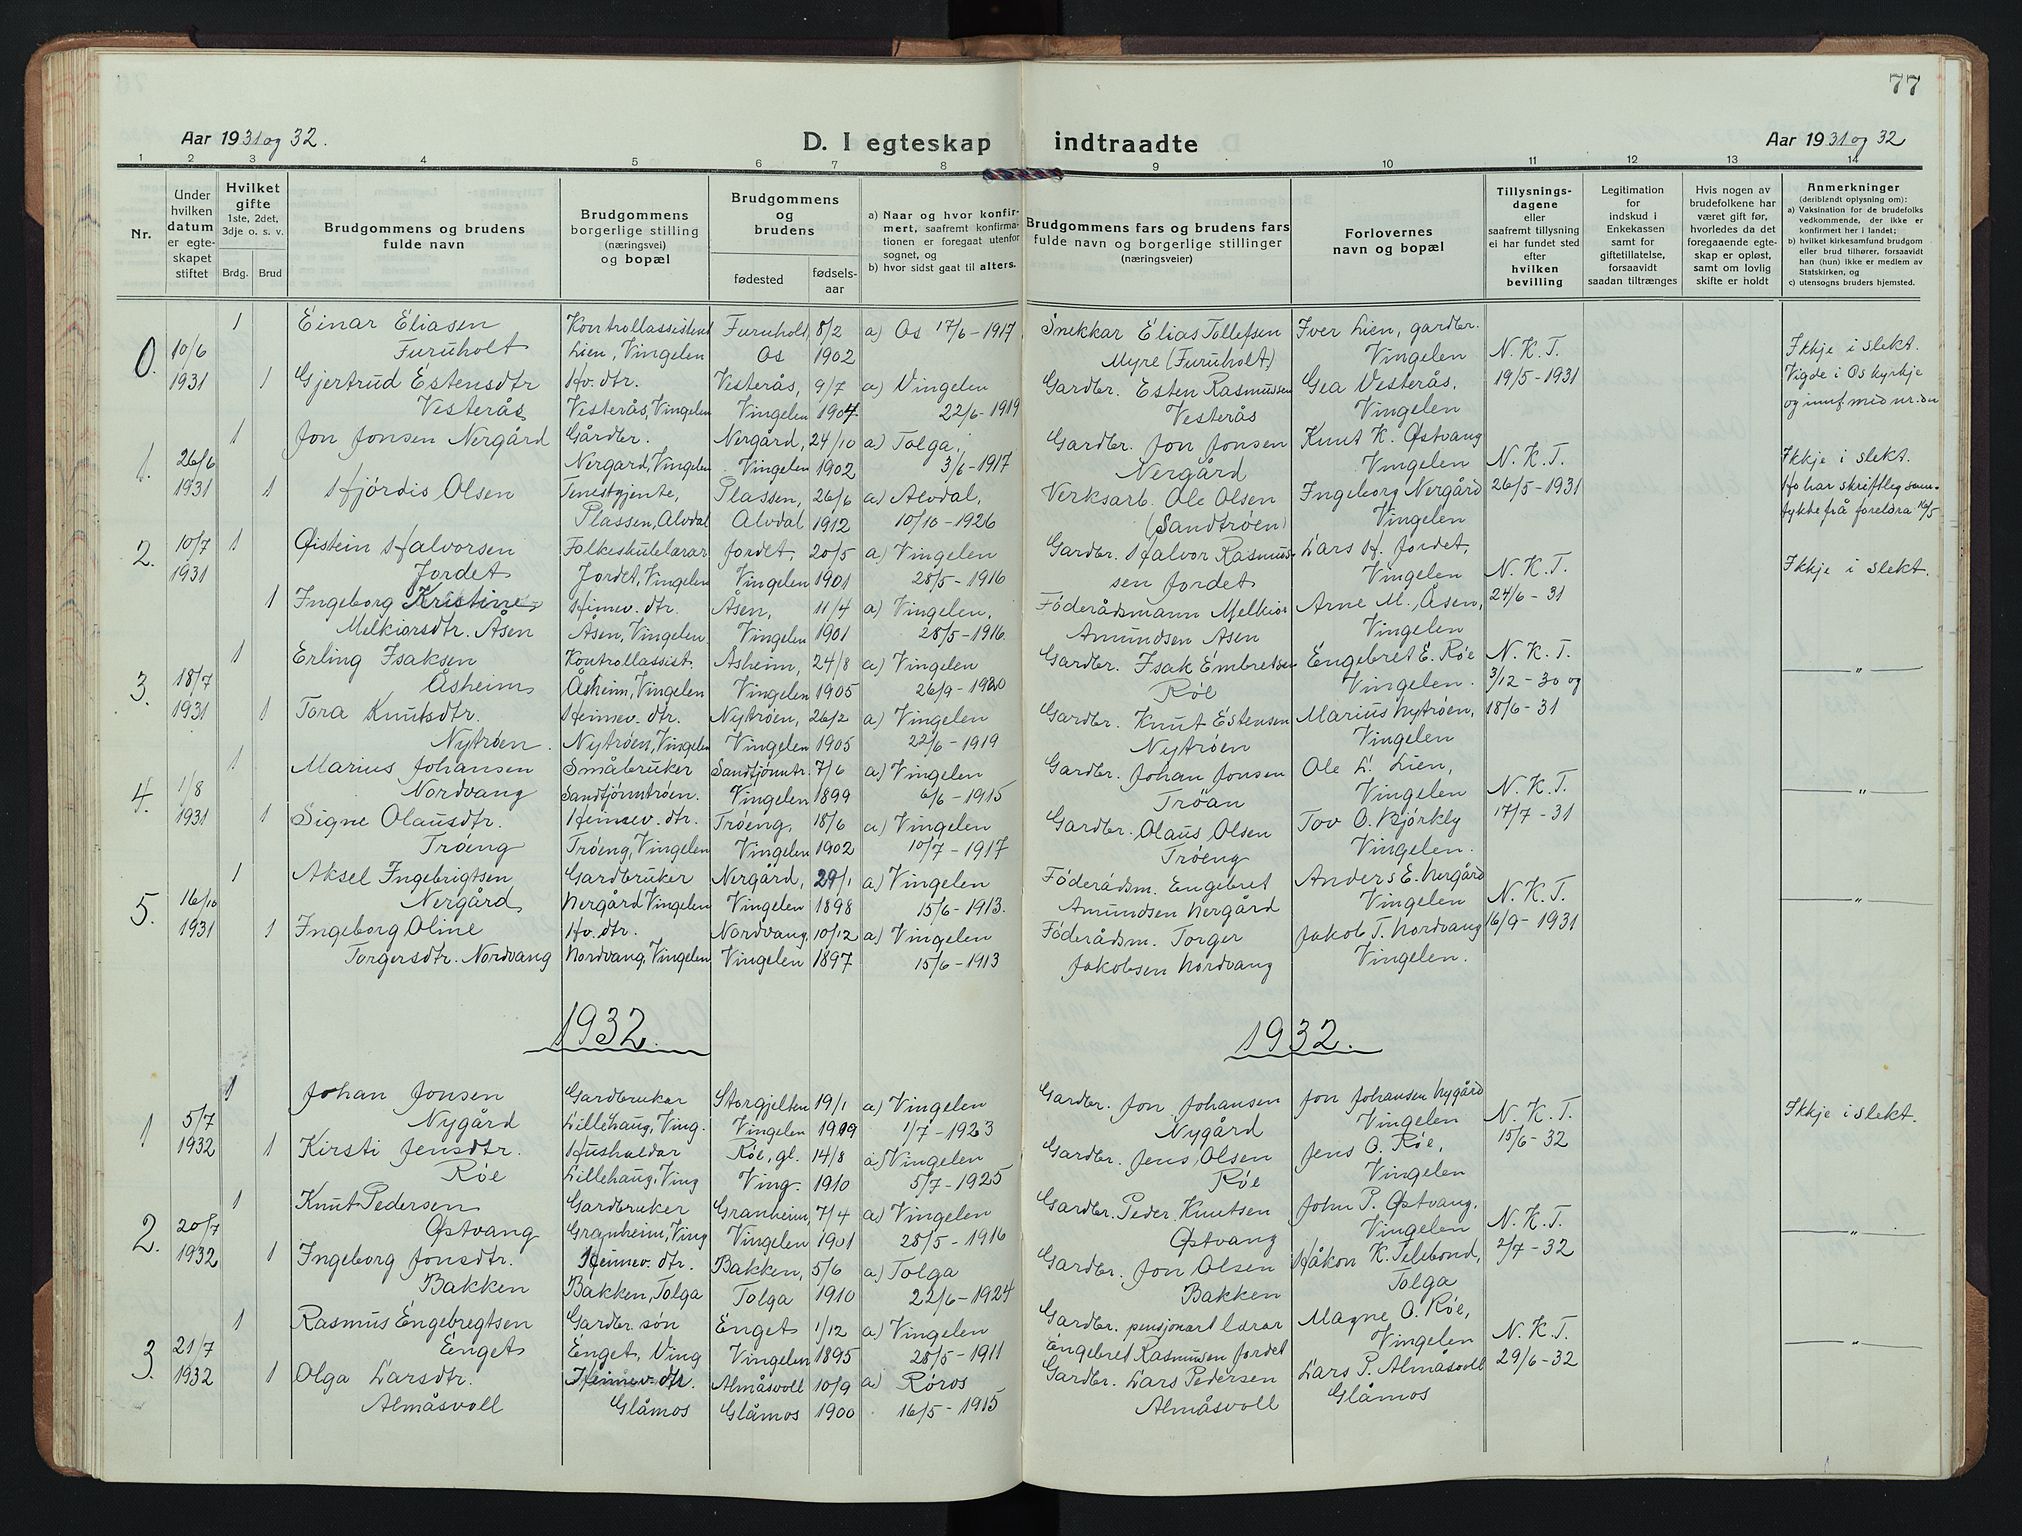 77
Aar 1931 og 32.
D. I egteskap indtraadte
Aar 1931 og 32
1 2 3 4 5 6 7 8 9 10 11 12 13 14
Nr.
Under hvilken datum er egte-skapet stiftet
Hvilket gifte 1ste, 2det, 3dje o. s. v.
Brdg. Brud
Brudgommens og brudens fulde navn
Brudgommens borgerlige stilling (næringsvei) og bopæl
Brudgommens og brudens
fødested fødsels-aar
a) Naar og hvor konfir-mert, saafremt konfirma-tionen er foregaat utenfor sognet, og
b) hvor sidst gaat til alters.
Brudgommens fars og brudens fars fulde navn og borgerlige stillinger (næringsveier)
Forlovernes navn og bopæl
Tillysnings-dagene eller saafremt tillysning ei har fundet sted efter hvilken bevilling
Legitimation for indskud i Enkekassen samt for giftetillatelse, forsaavidt saadan tiltrænges
Hvis nogen av brudefolkene har været gift før, hvorledes da det foregaaende egte-skap er opløst, samt om lovlig skifte er holdt
Anmerkninger (deriblandt oplysning om):
a) Vaksination for de brudefolks vedkommende, der ikke er konfirmert her i landet;
b) hvilket kirkesamfund brudgom eller brud tilhører, forsaavidt han (hun) ikke er medlem av Statskirken, og
c) utensogns bruders hjemsted.
0. 10/6 1931
1 Einar Eliasen Furuholt Kontrollassistent Lien, Vingelen Furuholt, Os 8/2 1902 a) Os 17/6-1917 Snekkar Elias Tollefsen Myre (Furuholt) Iver Lien, gardbr. Vingelen N.K.T. 19/5-1931 Ikkje i slekt. Vigde i Os kyrkje
1 Gjertrud Estensdtr Vesterås Hv. dtr. Vesterås, Vingelen Vesterås, Vingelen 9/7 1904. a) Vingelen 22/6-1919 Gardbr. Esten Rasmussen Vesterås Gea Vesterås, Vingelen
1. 26/6 1931
1 Jon Jonsen Nergård Gårdbr. Nergard, Vingelen Nergård, Vingelen 24/10 1902 a) Tolga, 3/6-1917 Gardbr. Jon Jonsen Nergård Knut K. Østvang Vingelen N.K.T. 26/5-1931 Ikkje i slekt. Ho har skriftleg sam-tykke frå foreldra 16/5
1 Hjördis Olsen Tenestgjente, Plassen, Alvdal Plassen, Alvdal 26/6 1912 a) Alvdal, 10/10-1926 Verksarb. Ole Olsen (Sandtrøen) Ingeborg Nergård Vingelen
2. 10/7 1931
1 Øistein Halvorsen Jordet Folkeskulelærar Jordet, Vingelen Jordet, Vingelen 20/5 1901 a) Vingelen 28/5-1916 Gardbr. Halvor Rasmus-sen Jordet Lars H. Jordet, Vingelen N.K.T. 24/6-31 Ikkje i slekt.
1 Ingeborg Kristine Melkiorsdtr. Åsen Heimev. dtr. Åsen, Vingelen Åsen, Vingelen 11/4 1901 a) Vingelen, 28/5-1916. Föderådsmann Melkior Amundsen Åsen Arne M. Åsen, Vingelen
3. 18/7 1931
1 Erling Isaksen Åsheim Kontrollassist. Åsheim, Vingelen Åsheim, Vingelen 24/8 1905 a) Vingelen 26/9-1920 Gardbr. Isak Embretsen Røe Engebret E. Røe Vingelen. N.K.T. 3/12-30 og 18/6-31 "
1 Tora Knutsdtr. Nytrøen. Heimev. dtr. Nytrøen, Vingelen Nytrøen, Vingelen 26/2 1905 a) Vingelen 22/6-1919 Gardbr. Knut Estensen Nytrøen Marius Nytrøen, Vingelen
4. 1/8 1931
1 Marius Johansen Nordvang Småbruker Sandtjønntrøen. Sandtjønntr. Vingelen 7/6 1899 a) Vingelen 6/6-1915 Gardbr. Johan Jonsen Trøan Ole L. Lien, Vingelen N.K.T. 17/7-31 "
1 Signe Olausdtr. Trøeng Heimev. dtr. Trøeng, Vingelen Trøeng, Vingelen 18/6 1902 a) Vingelen 10/7-1917 Gardbr. Olaus Olsen Trøeng Tov O. Bjørkly Vingelen.
5. 16/10 1931
1 Aksel Ingebrigtsen Nergård Gardbruker Nergård Vingelen Nergård, Vingelen 29/1 1898 a) Vingelen 15/6-1913. Föderådsm. Engebret Amundsen Nergård Anders E. Nergård Vingelen N.K.T. 16/9-1931 "
1 Ingeborg Oline Torgersdtr. Nordvang Hv. dtr. Nordvang, Vingelen Nordvang, Vingelen 10/12 1897 a) Vingelen 15/6-1913 Föderådsm. Torger Jakobsen Nordvang Jakob T. Nordvang Vingelen.
1932. 1932.
1 5/7 1932
1 Johan Jonsen Nygård Gardbrukar Lillehaug, Ving. Storgjelten Vingelen 19/1 1909 a) Vingelen 1/7-1923 Gardbr. Jon Johansen Nygård Jon Johansen Nygård Vingelen N.K.T. 15/6-32 Ikkje i slekt.
1 Kirsti Jensdtr. Røe Hushaldar Lillehaug, Ving Røe, gl. Ving. 14/8 1910 a) Vingelen 5/7-1925 Gardbr. Jens Olsen Røe Jens O. Røe, Vingelen
2. 20/7 1932
1 Knut Pedersen Østvang Gardbruker Granheim, Ving Granheim, Vingelen 7/4 1901 a) Vingelen 28/5-1916 Gardbr. Peder Knutsen Østvang John P. Østvang, Vingelen N.K.T. 2/7-32 "
1 Ingeborg Jonsdtr. Bakken Heimev. dtr. Bakken, Tolga Bakken, Tolga 5/6 1910 a) Tolga 22/6-1924 Gardbr. Jon Olsen Bakken Håkon K. Telebond, Tolga
3. 21/7 1932
1 Rasmus Engebregtsen Enget Gardbr. søn Enget, Ving Enget Vingelen 1/12 1895 a) Vingelen 28/5-1911 Gardbr. pensjonert lærar Engebret Rasmusen Jordet Magne O. Røe, Vingelen N.K.T. 29/6-32 "
1 Olga Larsdtr. Almåsvoll Heimev. dtr. Glåmos Almåsvoll Glåmos 10/9 1900 a) Røros 16/5-1915 Gardbr. Lars Pedersen Almåsvoll Lars P. Almåsvoll Glåmos